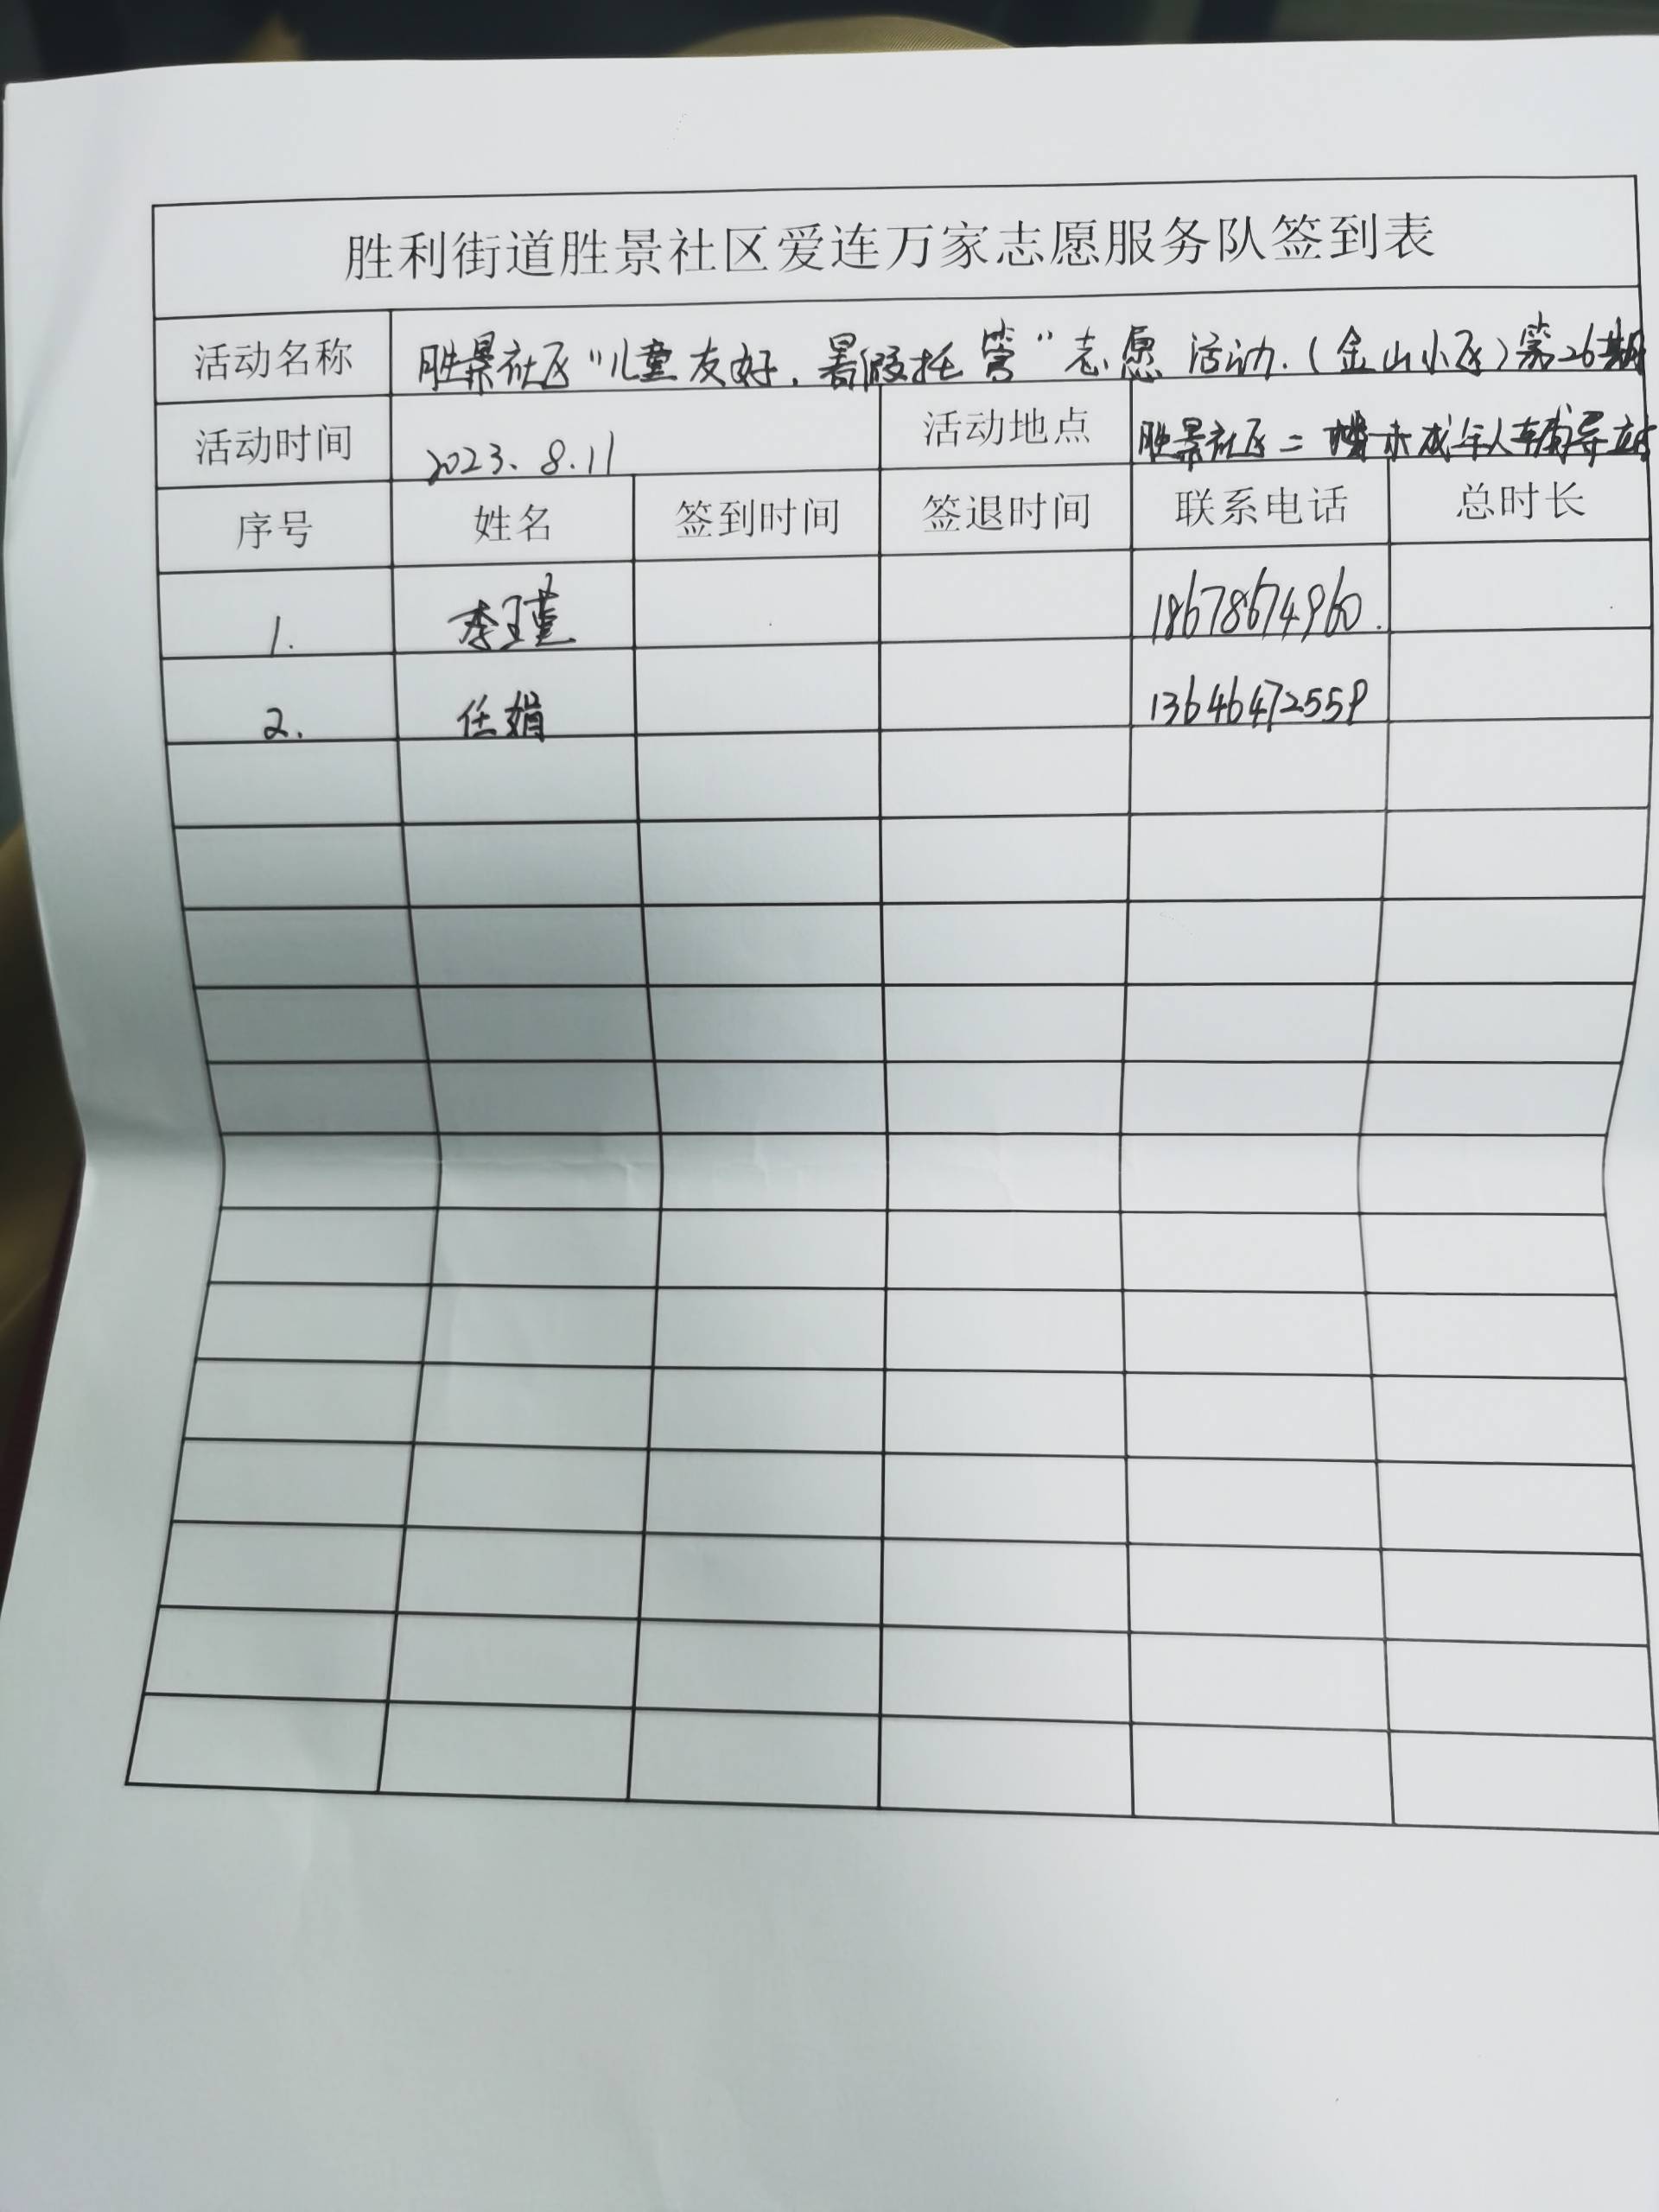 胜利街道胜景社区爱连万家志愿服务队签到表
活动名称 胜景社区“儿童友好，暑假托管”志愿活动.（金山小区）第26期
活动时间 2023.8.11 活动地点 胜景社区二楼未成年人辅导站
序号 姓名 签到时间 签退时间 联系电话 总时长
1. 李瑾 18678674960.
2. 任娟 13646472559